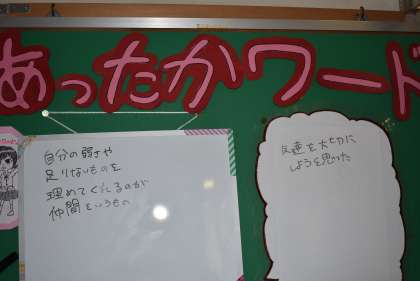 あったかワード
自分の弱さや
足りないものを
埋めてくれるのが
仲間というもの
友達を大切に
しようと思った